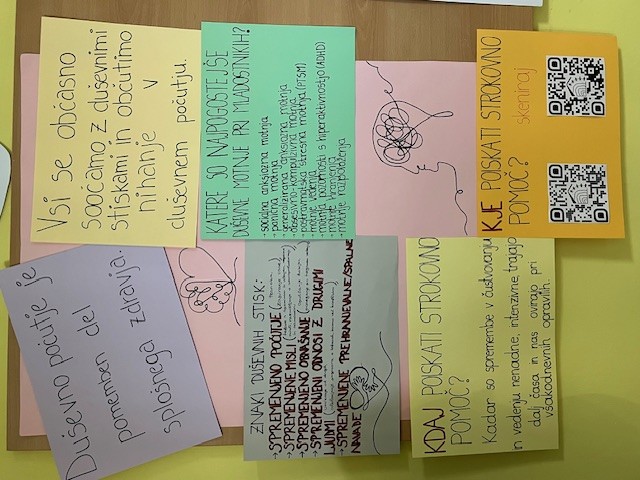 Vsi se občasno
soočamo z duševnimi
stiskami in občutimo
nihanje v
duševnem počutju.
Duševno počutje je
pomemben del
splošnega zdravja.
KATERE SO NAJPOGOSTEJŠE
DUŠEVNE MOTNJE PRI MLADOSTNIKIH?
→ socialna anksiozna motnja
→ panična motnja
→ generalizirana anksiozna motnja
→ obsesivno-kompulzivna motnja
→ postravmatska stresna motnja (PTSM)
→ motnje vedenja
→ motnje pozornosti s hiperaktivnostjo (ADHD)
→ motnje hranjenja
→ motnje razpoloženja
ZNAKI DUŠEVNIH STISK-
→ SPREMENJENO POČUTJE
→ SPREMENJENE MISLI
→ SPREMENJENO OBNAŠANJE
→ SPREMENJENI ODNOSI Z DRUGIMI
LJUDMI
→ SPREMENJENE PREHRANJEVALNE/SPALNE
NAVADE
KJE POISKATI STROKOVNO
POMOČ? skeniraj
KDAJ POISKATI STROKOVNO
POMOČ?
Kadar so spremembe v čustvovanju
in vedenju nenadne, intenzivne, trajajo
dalj časa in nas ovirajo pri
vsakodnevnih opravilih.